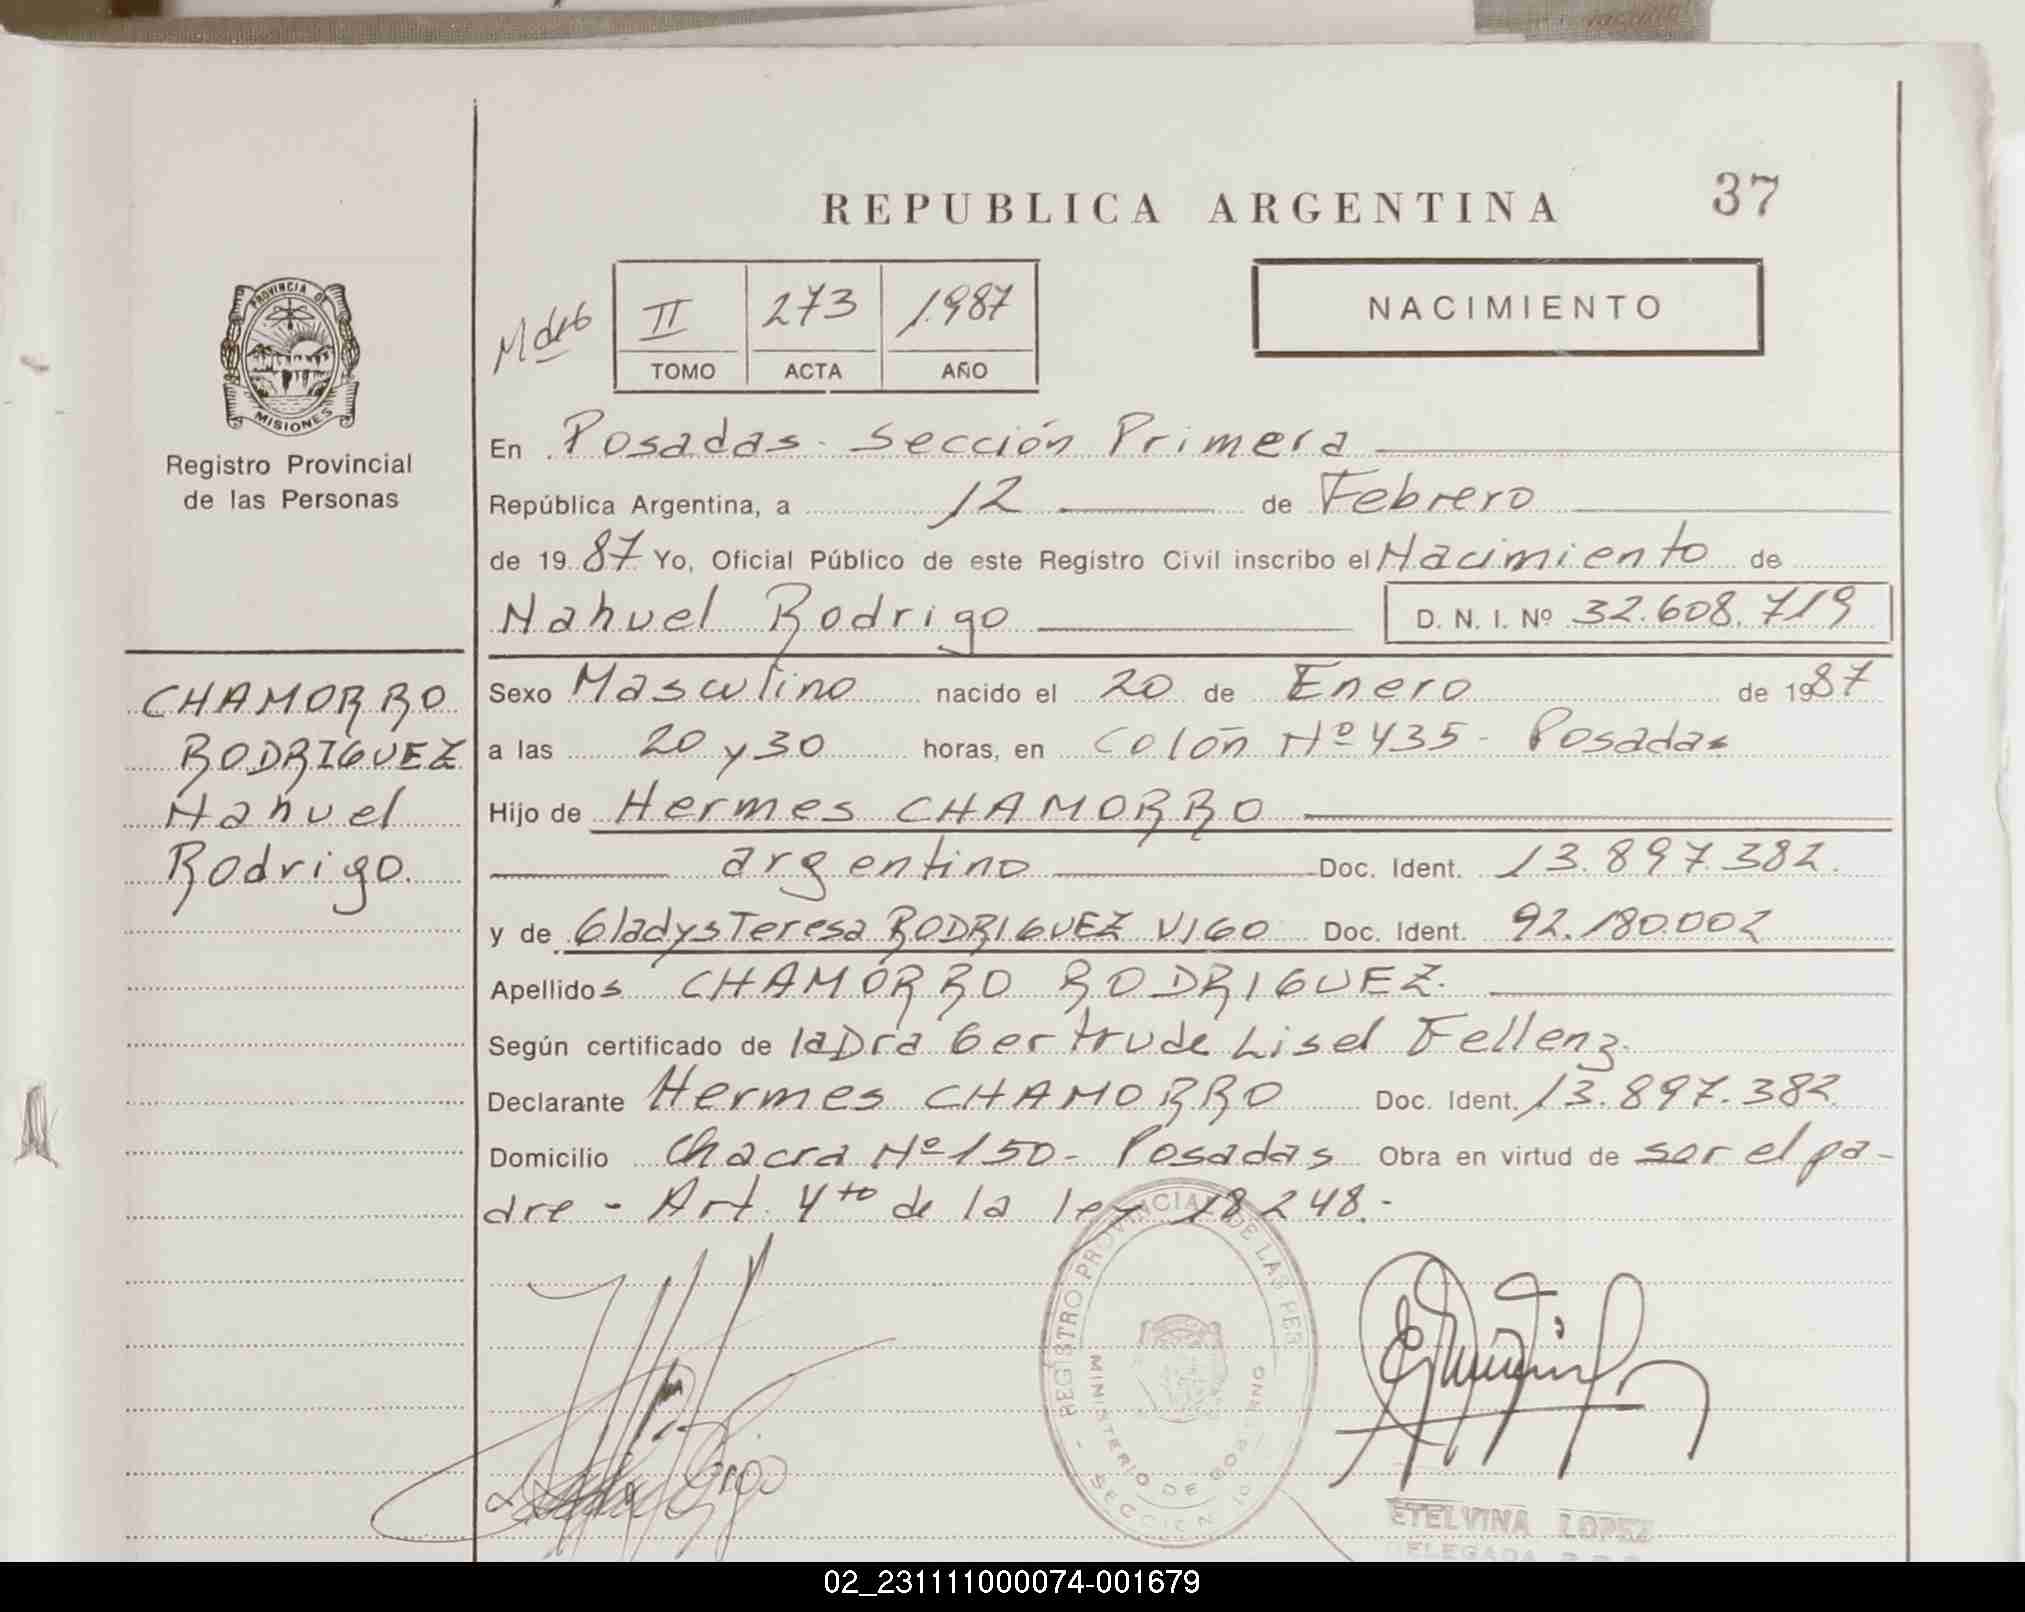 REPUBLICA ARGENTINA
37
II 273 1987
TOMO ACTA AÑO
NACIMIENTO
PROVINCIA DE
MISIONES
Registro Provincial
de las Personas
En Posadas - Sección Primera
República Argentina, a 12 de Febrero
de 1987 Yo, Oficial Público de este Registro Civil inscribo el Nacimiento de
Nahuel Rodrigo D. N. I. Nº 32.608.719
CHAMORRO
RODRIGUEZ
Nahuel
Rodrigo.
Sexo Masculino nacido el 20 de Enero de 1987
a las 20 y 30 horas, en Colón Nº 435 - Posadas
Hijo de Hermes CHAMORRO
argentino Doc. Ident. 13.897.382.
y de Gladys Teresa RODRIGUEZ VIGO Doc. Ident. 92.180.002
Apellidos CHAMORRO RODRIGUEZ.
Según certificado de la Dra Gertrude Lisel Fellenz.
Declarante Hermes CHAMORRO Doc. Ident. 13.897.382.
Domicilio Chacra Nº 150 - Posadas Obra en virtud de ser el pa-
dre - Art. 4to de la ley 18248.-
REGISTRO PROVINCIAL DE LAS PERS
MINISTERIO DE GOBIERNO
SECCION 1º
ETELVINA LOPEZ
DELEGADA
02_231111000074-001679